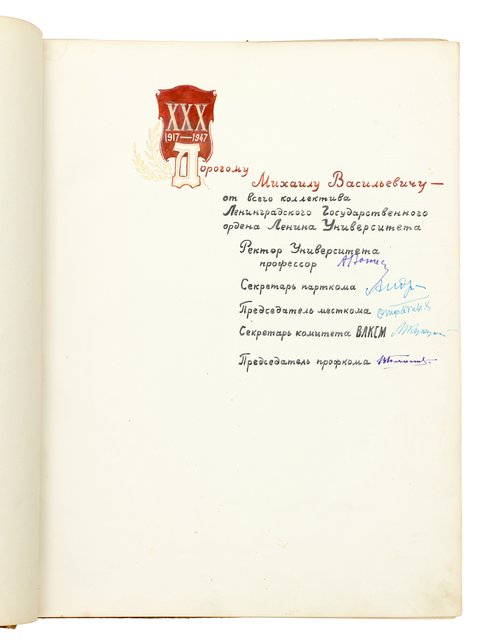 XXX
1917—1947
Дорогому
Михаилу Васильевичу —
от всего коллектива
Ленинградского Государственного
ордена Ленина Университета
Ректор Университета
профессор
Секретарь парткома
Председатель месткома
Секретарь комитета ВЛКСМ
Председатель профкома